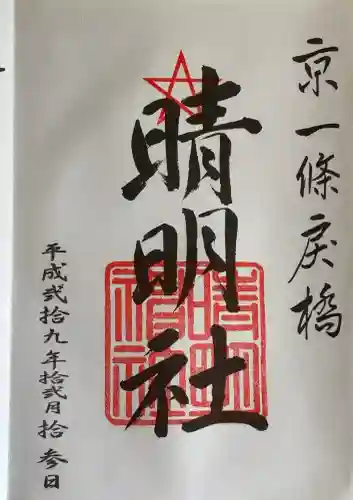 京一條戻橋
晴明社
平成弐拾九年拾弐月拾参日
晴明神社